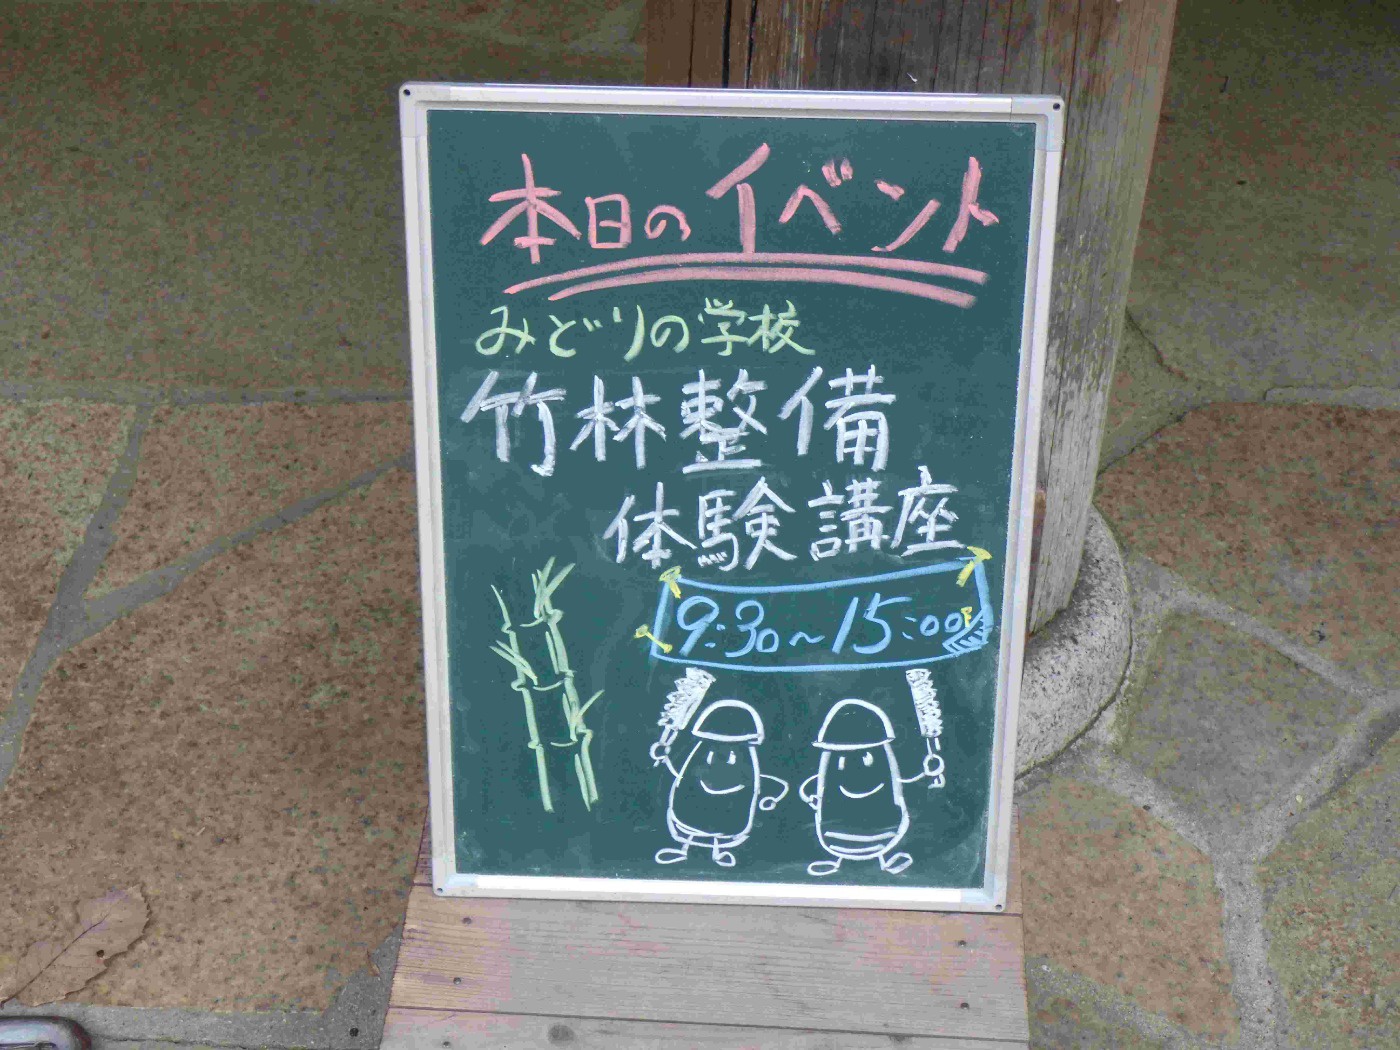 本日のイベント
みどりの学校
竹林整備
体験講座
9:30~15:00